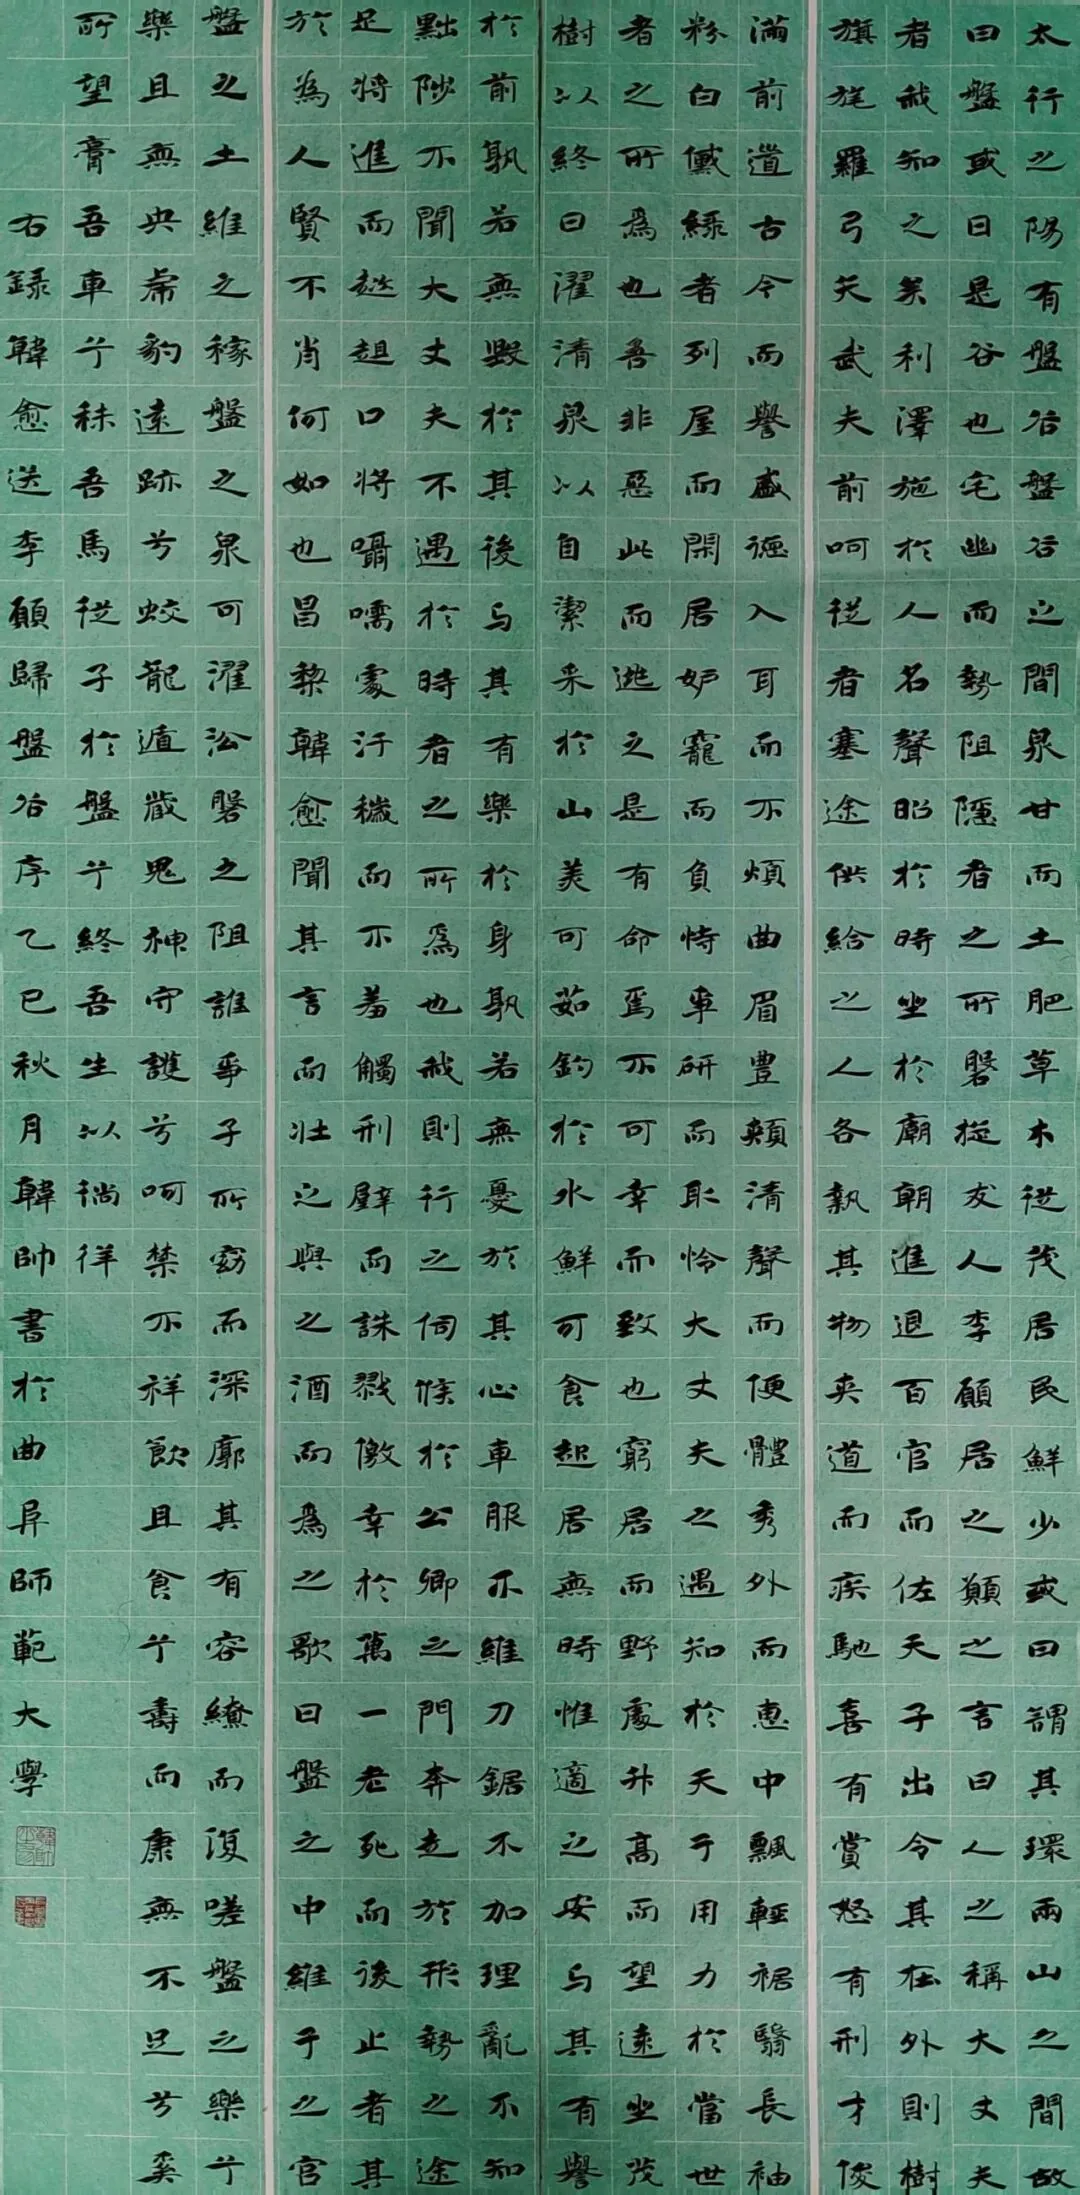 太行之陽有盤谷盤谷之間泉甘而土肥草木從茂居民鮮少或曰謂其環兩山之間故
曰盤或曰是谷也宅幽而勢阻隱者之所磐旋友人李願居之願之言曰人之稱大丈夫
者我知之矣利澤施於人名聲昭於時坐於廟朝進退百官而佐天子出令其在外則樹
旗旄羅弓矢武夫前呵從者塞途供給之人各執其物夾道而疾馳喜有賞怒有刑才俊
滿前道古今而譽盛德入耳而不煩曲眉豐頰清聲而便體秀外而惠中飄輕裾翳長袖
粉白黛綠者列屋而閑居妒寵而負恃爭研而取怜大丈夫之遇知於天子用力於當世
者之所為也吾非惡此而逃之是有命焉不可幸而致也窮居而野處升高而望遠坐茂
樹以終日濯清泉以自潔采於山美可茹釣於水鮮可食起居無時惟適之安与其有譽
於前孰若無毀於其後与其有樂於身孰若無憂於其心車服不維刀鋸不加理亂不知
黜陟不聞大丈夫不遇於時者之所為也我則行之伺候於公卿之門奔走於形勢之途
足將進而趑趄口將囁嚅處汙穢而不羞觸刑辟而誅戮僥幸於萬一老死而後止者其
於為人賢不肖何如也昌黎韓愈聞其言而壯之與之酒而為之歌曰盤之中維子之官
盤之土維之稼盤之泉可濯沿磐之阻誰爭子所窈而深廓其有容繚而復嗟盤之樂兮
樂且無央虎豹遠跡兮蛟龍遁藏鬼神守護兮呵禁不祥飲且食兮壽而康無不足兮奚
所望膏吾車兮秣吾馬從子於盤兮終吾生以徜徉
右錄韓愈送李願歸盤谷序乙巳秋月韓帥書於曲阜師範大學